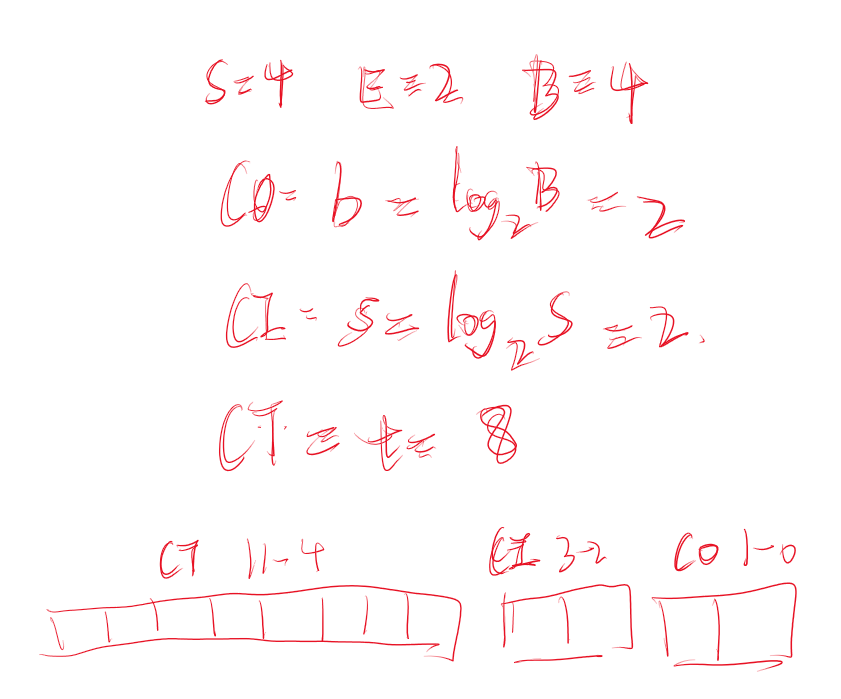 S=4 E=2 B=4
CO= b = log₂B = 2
CI= s= log₂S = 2.
CT = t= 8
CT 11-4 CI 3-2 CO 1-0